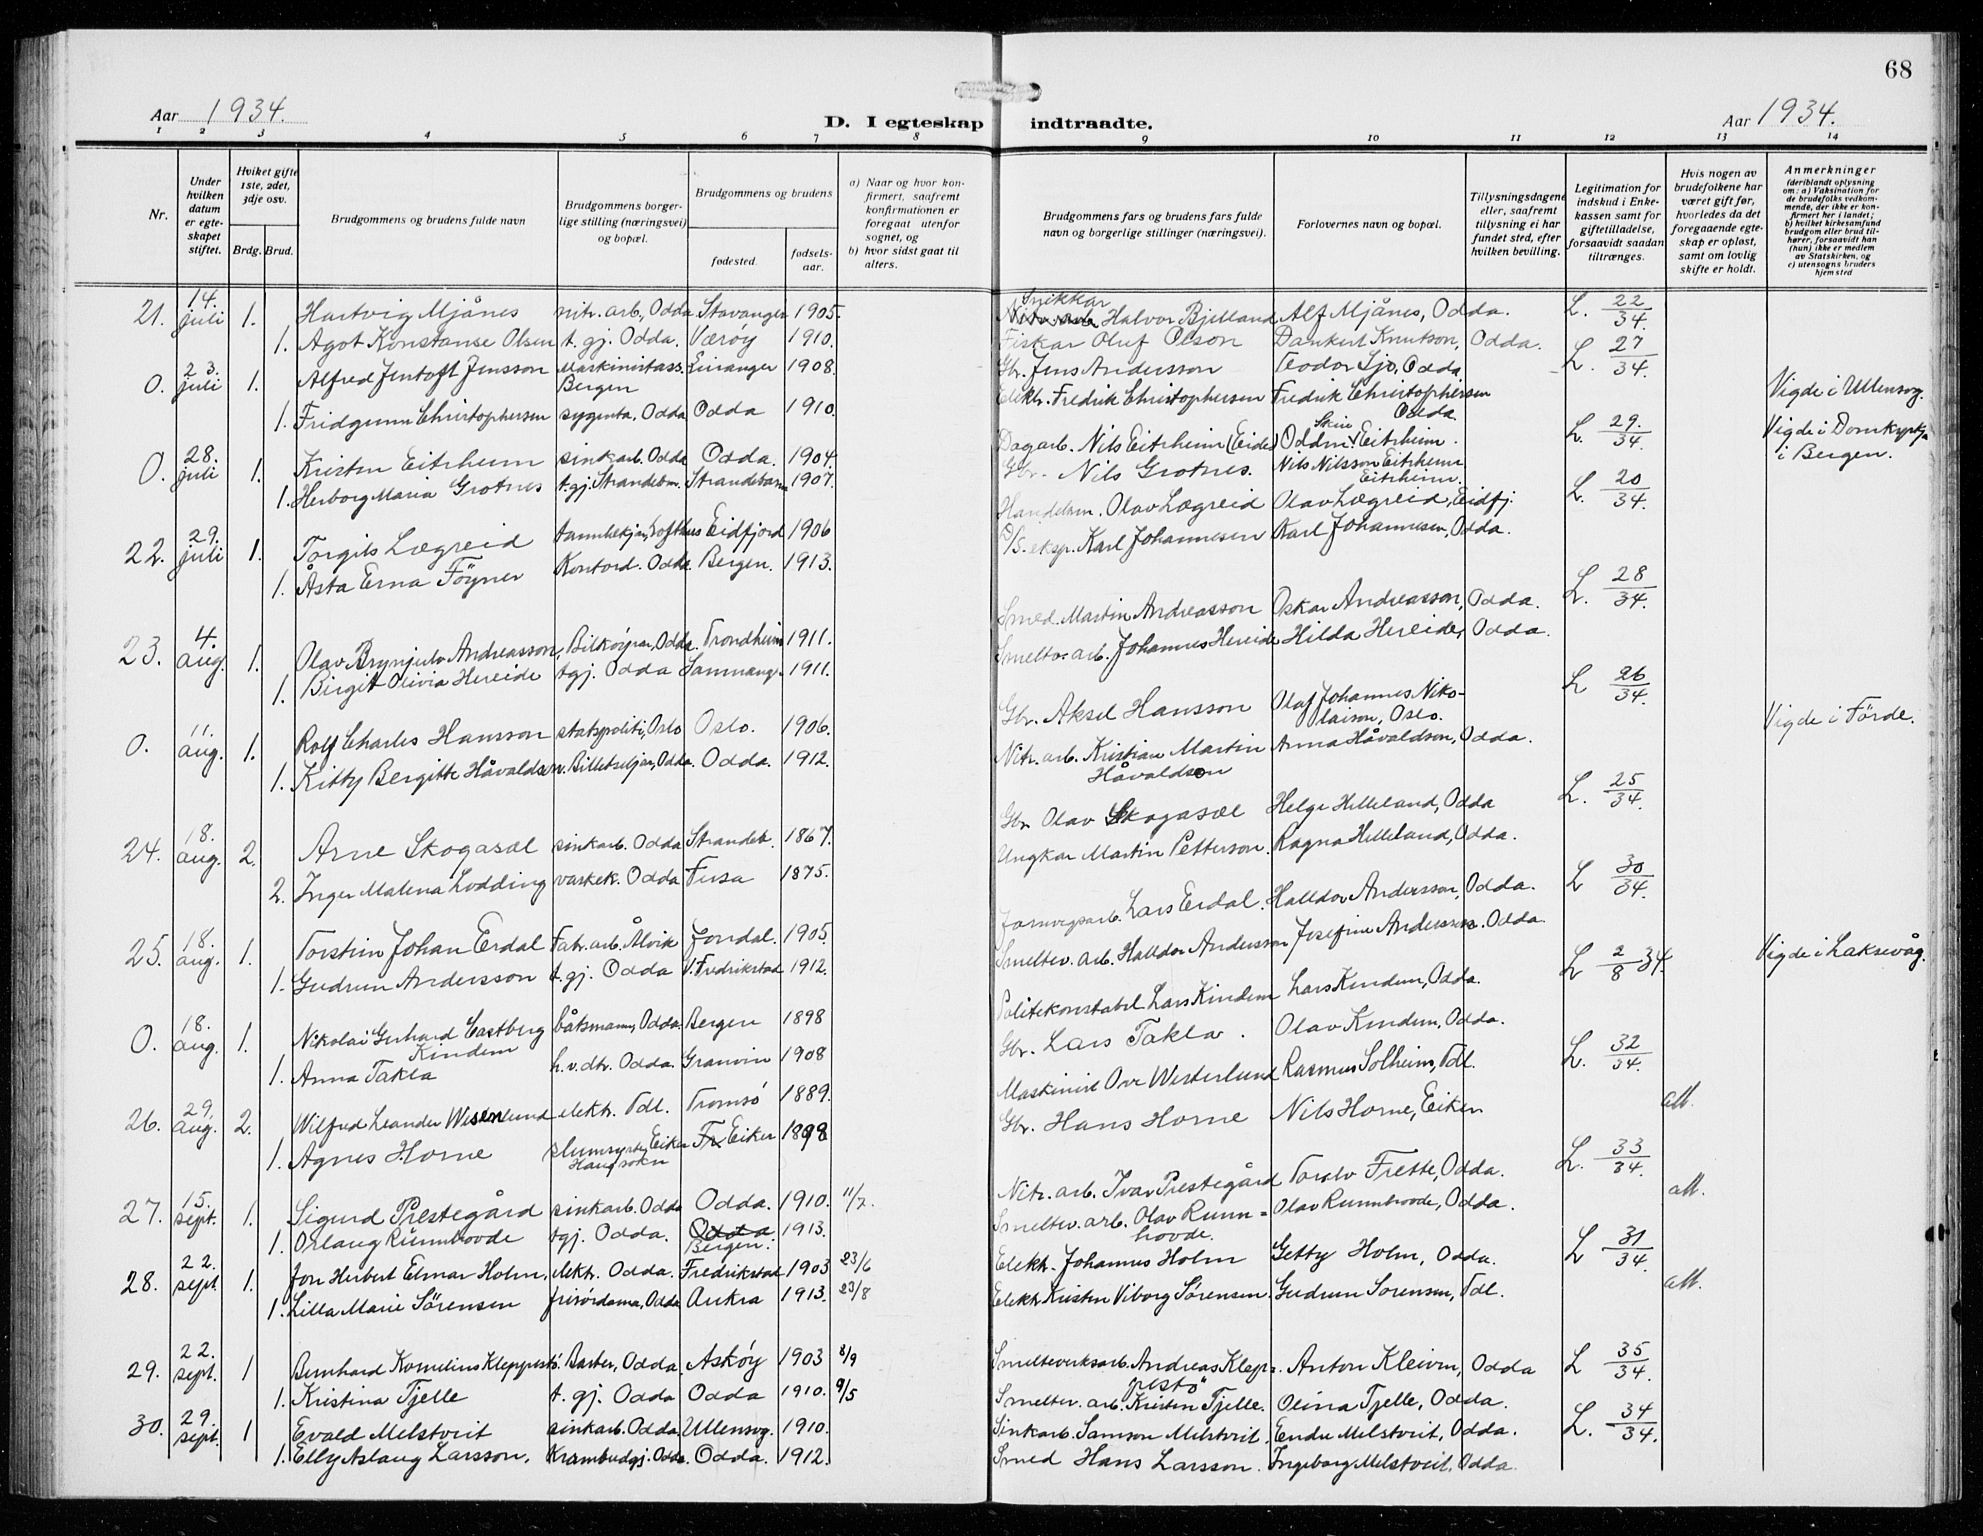 68
Aar 1934.
D. I egteskap indtraadte.
Aar 1934.
1 2 3 4 5 6 7 8 9 10 11 12 13 14
Nr.
Under hvilken datum er egteskapet stiftet.
Hviket gifte 1ste, 2det, 3dje osv.
Brdg. Brud.
Brudgommens og brudens fulde navn
Brudgommens borgerlige stilling (næringsvei) og bopæl.
Brudgommens og brudens
fødested.
fødselsaar.
a) Naar og hvor konfirmert, saafremt konfirmationen er foregaat utenfor sognet, og
b) hvor sidst gaat til alters.
Brudgommens fars og brudens fars fulde navn og borgerlige stillinger (næringsvei).
Forlovernes navn og bopæl.
Tillysningsdagene eller, saafremt tillysning ei har fundet sted, efter hvilken bevilling.
Legitimation for indskud i Enkekassen samt for giftetilladelse, forsaavidt saadan tiltrænges.
Hvis nogen av brudefolkene har været gift før, hvorledes da det foregaaende egteskap er opløst, samt om lovlig skifte er holdt.
Anmerkninger (deriblandt oplysning om: a) Vaksination for de brudefolks vedkommende, der ikke er konfirmert her i landet; b) hvilket kirkesamfund brudgom eller brud tilhører, forsaavidt han (hun) ikke er medlem av Statskirken, og c) utensogns bruders hjemsted
21. 14. juli 1. Hartvig Mjånes nitr. arb. Odda Stavanger 1905. Snikkar Halvor Bjelland Alf Mjånes, Odda. L. 22/34.
1. Agot Konstanse Olsen t. gj. Odda. Værøy 1910. Fiskar Oluf Olson Dankert Knutson, Odda.
0. 23. juli 1. Alfred Jentoft Jensson Maskinistass. Bergen Leiranger 1908. Gbr. Jens Andersson Teodor Sjo, Odda L. 27/34.
1. Fridgunn Christophersen sygenta, Odda Odda 1910. Elektr. Fredrik Christophersen Fredrik Christophersen Odda Vigde i Ullensvg.
0. 28. juli 1. Kristen Eitrheim sinkarb. Odda Odda. 1904. Dagarb. Nils Eitrheim (Eide) Oddm. Skine Eitrheim. L. 29./34. Vigde i Domkyrkja i Bergen.
1. Herborg Maria Grotnes t.gj. Strandebm. Strandebarm 1907. Gbr. Nils Grotnes. Nils Nilsson Eitrheim Eitrheim.
22. 29. juli 1. Torgils Lægreid tannlækjar, Lofthus Eidfjord 1906 Handelsm. Olav Lægreid Olav Lægreid, Eidfj. L. 20/34.
1. Åsta Erna Föyner Kontord. Odda Bergen. 1913. D/S. eksp. Karl Johannesen Karl Johannesen, Odda.
23. 4. aug. 1. Olav Brynjulv Andreasson, Bilkøyrar, Odda. Trondheim 1911. Smed. Martin Andreasson Oskar Andreasson, Odda. L. 28/34.
1. Birgit Olivia Hereide tgj. Odda Samnang. 1911. Smeltv. arb. Johannes Hereide Hilda Hereide, Odda.
0. 11. aug. 1. Rolf Charles Hansson statspoliti, Oslo Oslo. 1906. Gbr. Aksel Hansson Olaf Johannes Nikolaison, Oslo. L 26/34. Vigde i Förde.
1. Kitty Bergitte Håvaldsen. Billetseljar, Odda. Odda. 1912. Nitr. arb. Kristian Martin Håvaldson Anna Håvaldson, Odda.
24. 18. aug. 2. Arne Skogasæl sinkarb. Odda Strandeb. 1867. Gbr Olav Skogasæl Helge Hilleland, Odda L. 25/34.
2. Inger Malena Lodding vaskek. Odda Fusa 1875. Ungkar Martin Petterson. Ragna Hilleland, Odda.
25. 18. aug. 1. Torstein Johan Erdal Fabr. arb. Ålvik Jondal. 1905. Jarnvegsarb. Lars Erdal. Halldor Andersson, Odda. L 30/34.
1. Gudrun Andersson t. gj. Odda V. Fredrikstad 1912. Smeltev. arb. Halldor Andersson Josefine Andersson. Odda.
0. 18. aug. 1. Nikolai Gerhard Castberg Kindem båtsmann, Odda. Bergen 1898 Politikonstabel Lars Kindem Lars Kindem, Odda. L 2/8 34. Vigde i Laksevåg.
1. Anna Takla h. v. dtr. Odda. Granvin 1908 Gbr. Lars Takla. Olav Kindem, Odda.
26. 29. aug. 2. Wilfred Leander Wesenlund elektr. Tdl. Tromsö 1889. Maskinist Ove Westerlund Rasmus Solheim, Tdl. L. 32/34. att.
1. Agnes Horne slumsyster, Eiker Haugsokn Eiker 1898 Gbr. Hans Horne Nils Horne, Eiker
27. 15. sept. 1. Sigurd Prestegård sinkarb. Odda Odda. 1910. 11/7. Nitr. arb. Ivar Prestegård Torolv Frette, Odda. L. 33/34. att.
1. Oslaug Runnhovde tgj. Odda. Odda Bergen. 1913. Smeltev. arb. Olav Runnhovde. Olav Runnhovde, Odda.
28. 22. sept 1. Jon Herbert Elmar Holm, elektr. Odda. Fredrikstad 1903 23/6 Elektr. Johannes Holm Getty Holm, Odda. L 31/34. att.
1. Lilla Marie Sörensen frisördama, Odda Aukra 1913. 23/8 Elektr Kristen Viborg Sörensen. Gudrun Sorensen, Tdl.
29. 22. sept. 1 Bernhard Kornelius Kleppestö. Barber, Odda. Askøy 1903 8/9 Smelteverksarb. Andreas Kleppestö Anton Kleiven, Odda L 35/34.
1. Kristina Tjelle t. gj. Odda Odda 1910. 9/5 Smeltev. arb. Kristen Tjelle. Olina Tjelle, Odda.
30. 29. sept. 1 Evald Melstveit sinkarb. Odda. Ullensvg. 1910. Sinkarb. Samson Melstveit. Endre Melstveit, Odda. L. 34/34.
1. Elly Aslaug Larsson. Krambudgj. Odda. Odda. 1912. Smed Hans Larsson. Ingeborg Melstveit, Odda.